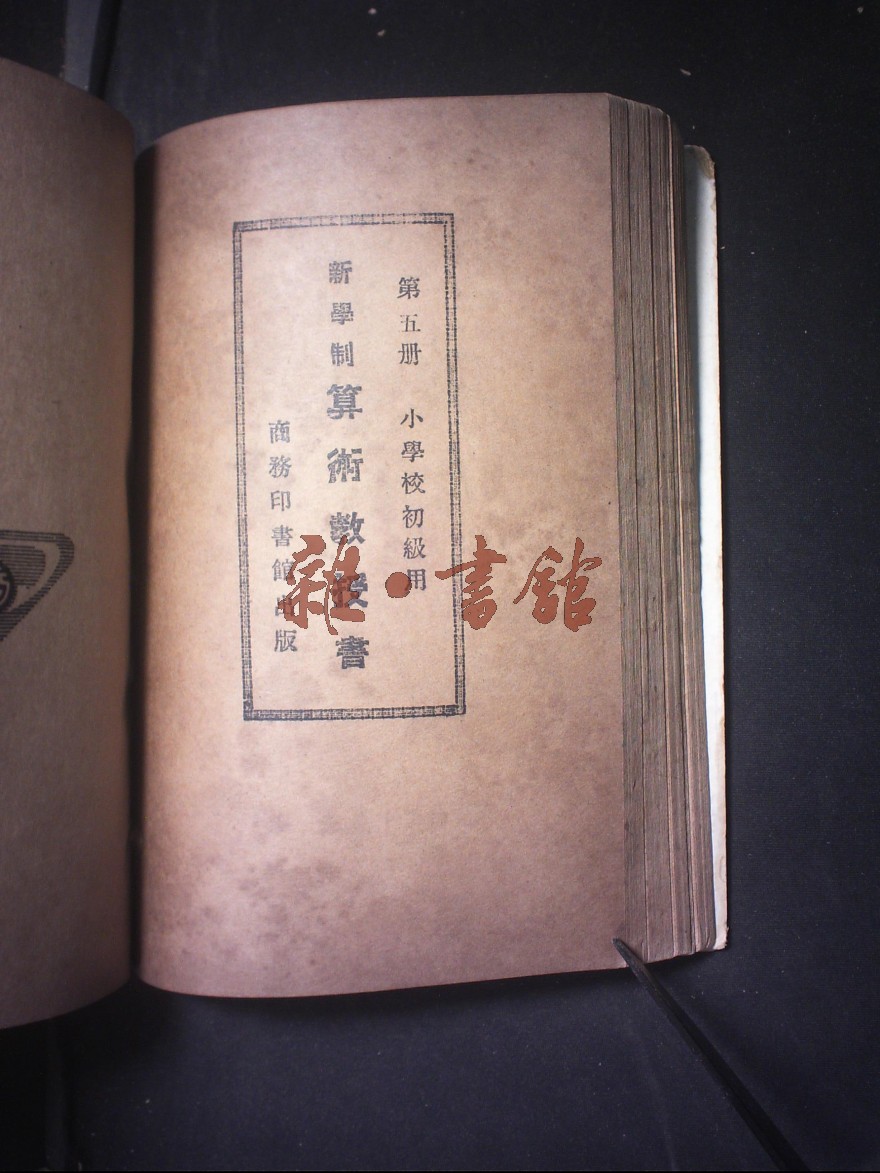 第五册 小學校初級用
新學制算術教授書
商務印書館出版
雜·書館